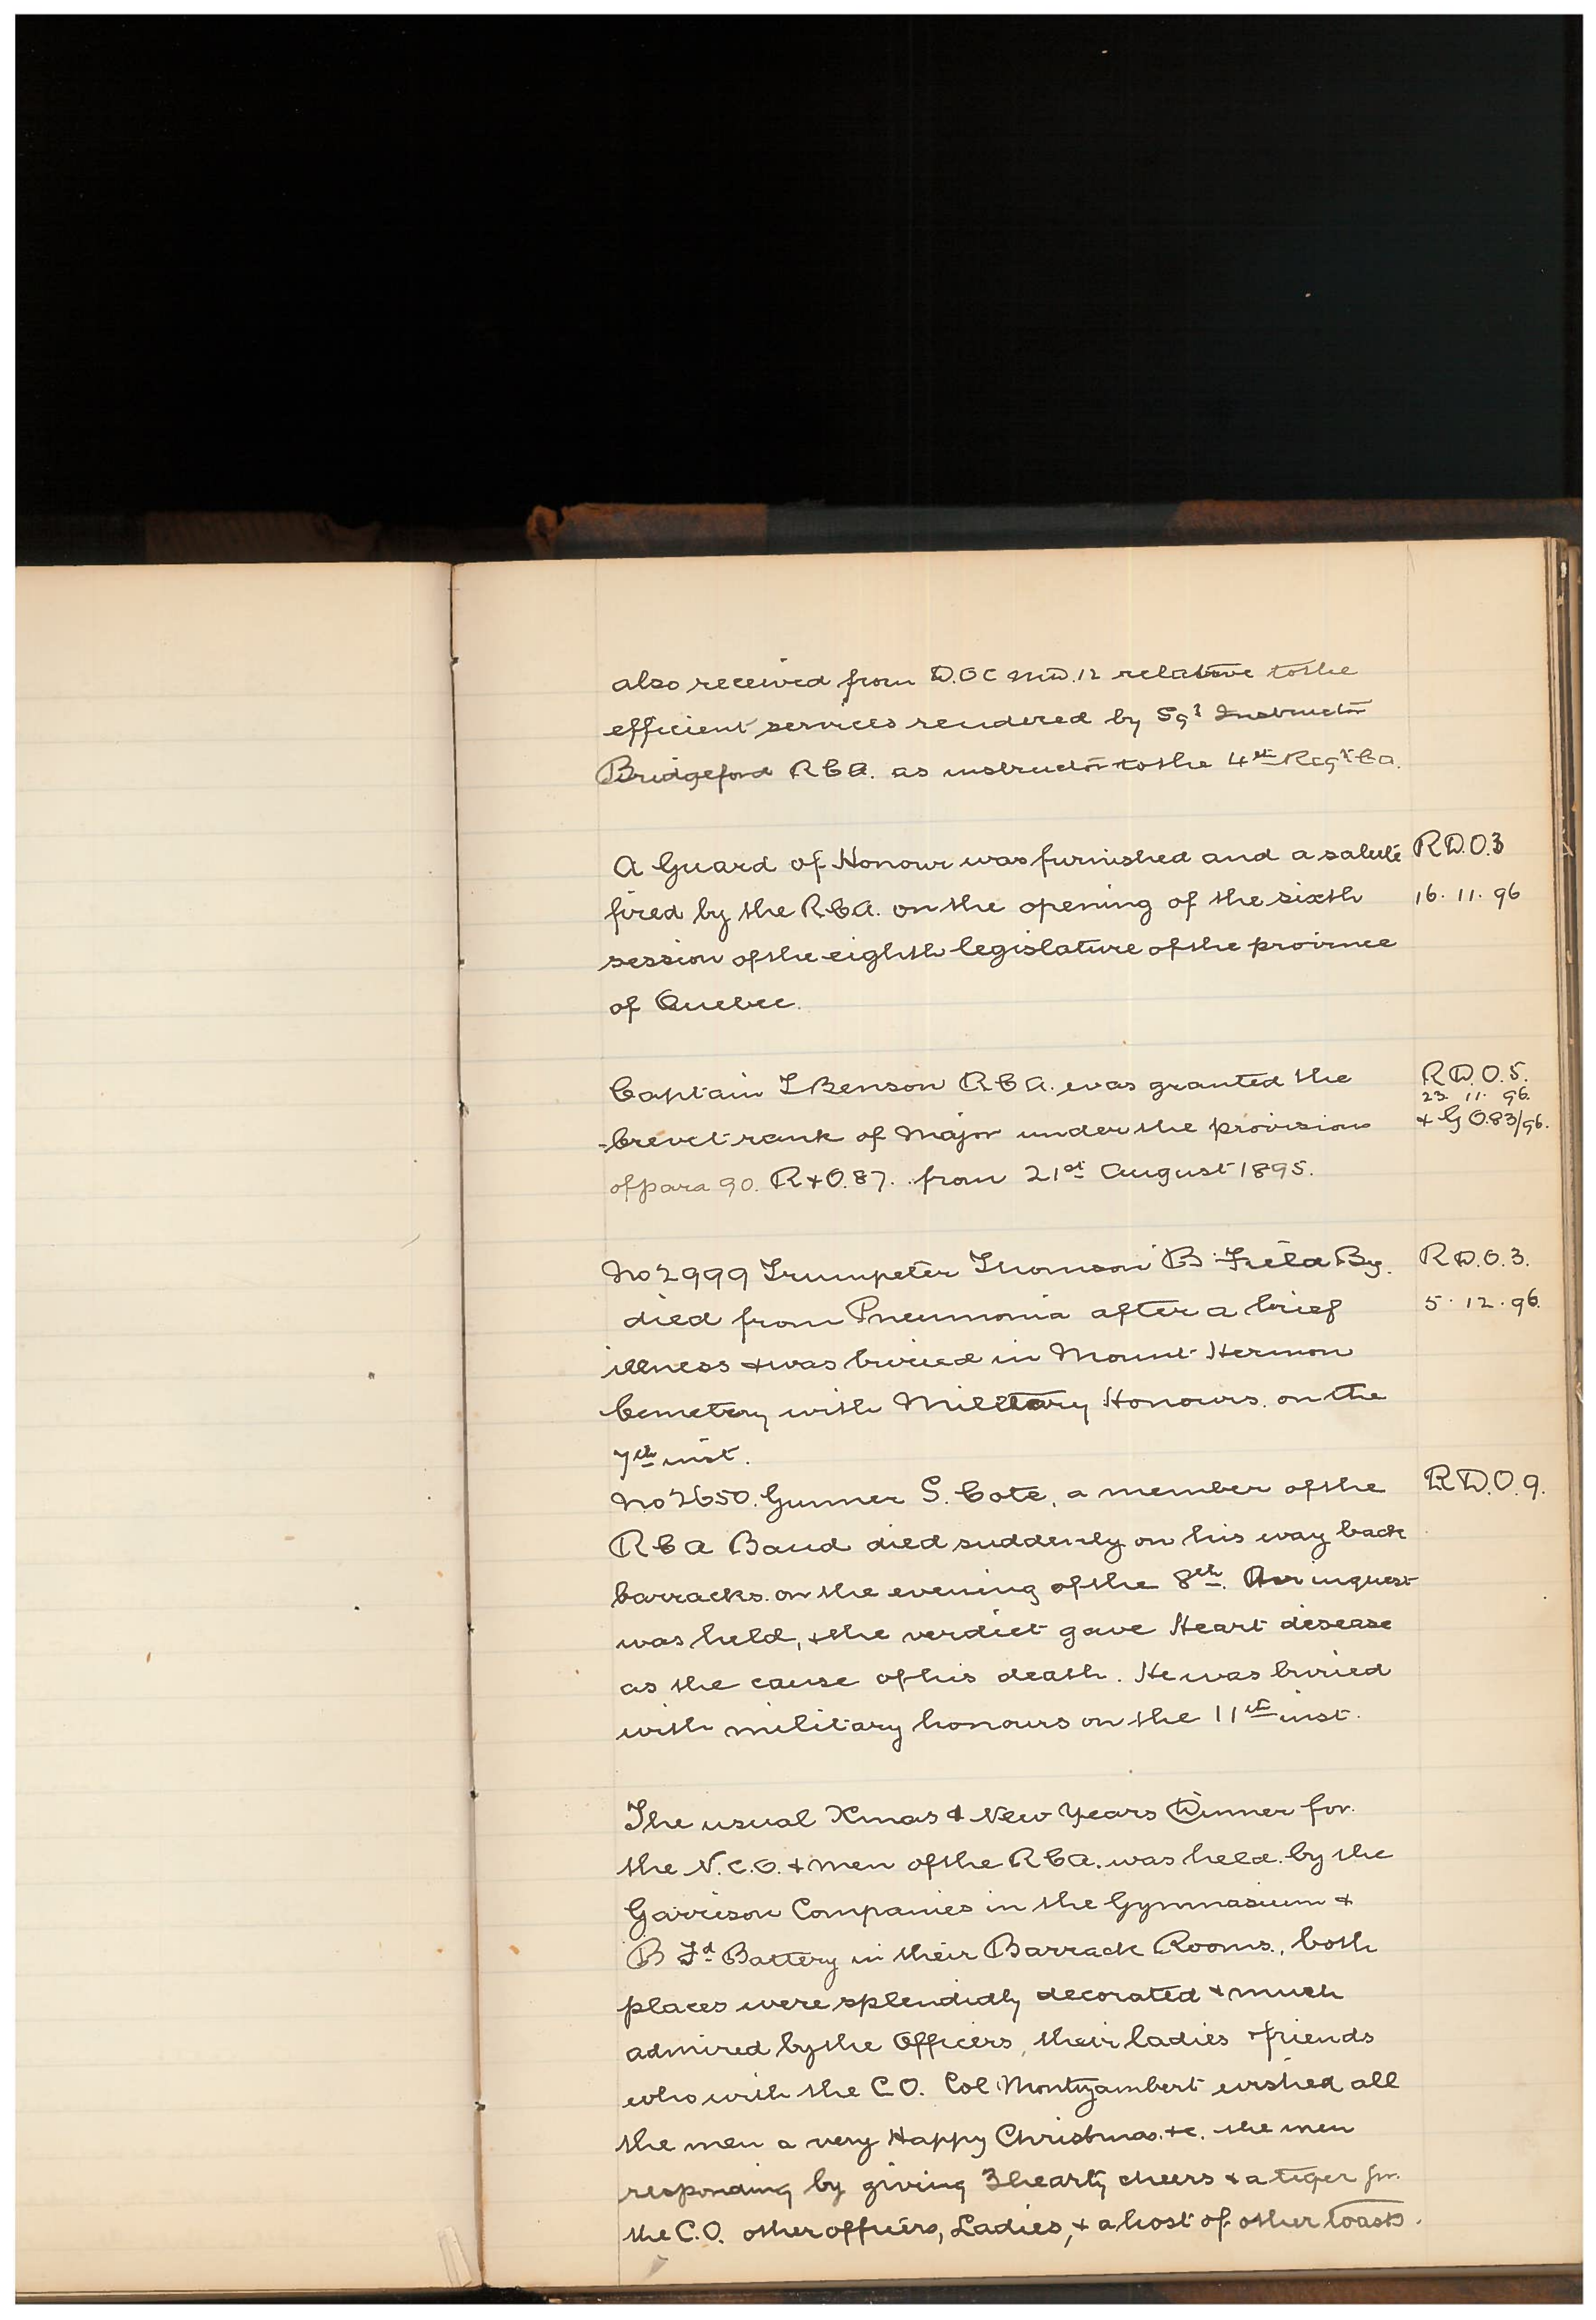 also received from D.O.C M.D.12 relative to the
efficient services rendered by Sgt Instructor
Bridgeford R C A. as instructor to the 4th Regt C a.
A Guard of Honour was furnished and a salute R D.O.3
fired by the R C A. on the opening of the sixth 16. 11. 96
session of the eighth legislature of the province
of Quebec.
Captain T Benson R C A. was granted the R D. O. 5.
23 11. 96.
brevet rank of Major under the provisions + G O.83/96.
of para 90. R + O. 87. from 21st August 1895.
No 2999 Trumpeter Thomson B Field By. R D. O. 3.
died from Pneumonia after a brief 5. 12. 96.
illness + was buried in Mount Hermon
Cemetery with Military Honours. on the
7th inst.
No 2650. Gunner S. Cote, a member of the R D. O. 9.
R C A Band died suddenly on his way back
barracks. on the evening of the 8th. An inquest
was held, + the verdict gave Heart disease
as the cause of his death. He was buried
with military honours on the 11th inst.
The usual Xmas & New Years Dinner for
the N. C. O. + men of the R C A. was held. by the
Garrison Companies in the Gymnasium +
B Fd Battery in their Barrack Rooms., both
places were splendidly decorated + much
admired by the Officers, their ladies + friends
who with the C O. Col Montizambert wished all
the men a very Happy Christmas. +c. the men
responding by giving 3 hearty cheers + a tiger for
the C.O. other officers, Ladies, + a host of other toasts.